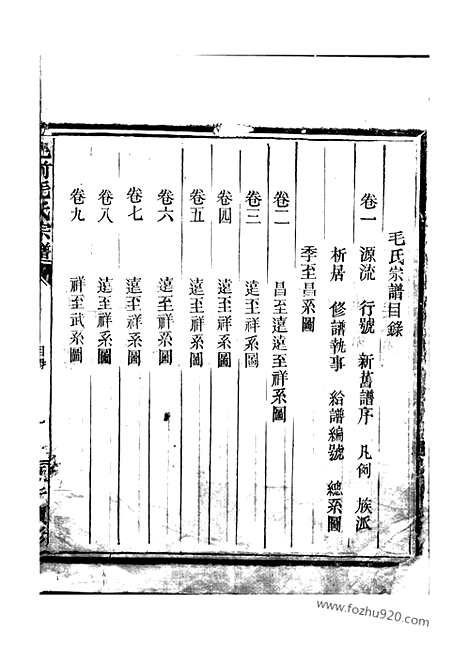 毛氏宗譜目錄
卷一 源流 行號 新舊譜序 凡例 族派
析居 修譜執事 給譜編號 總系圖
季至昌系圖
卷二 昌至遠遠至祥系圖
卷三 遠至祥系圖
卷四 遠至祥系圖
卷五 遠至祥系圖
卷六 遠至祥系圖
卷七 遠至祥系圖
卷八 遠至祥系圖
卷九 祥至武系圖
前毛氏宗譜
www.fozhu920.com